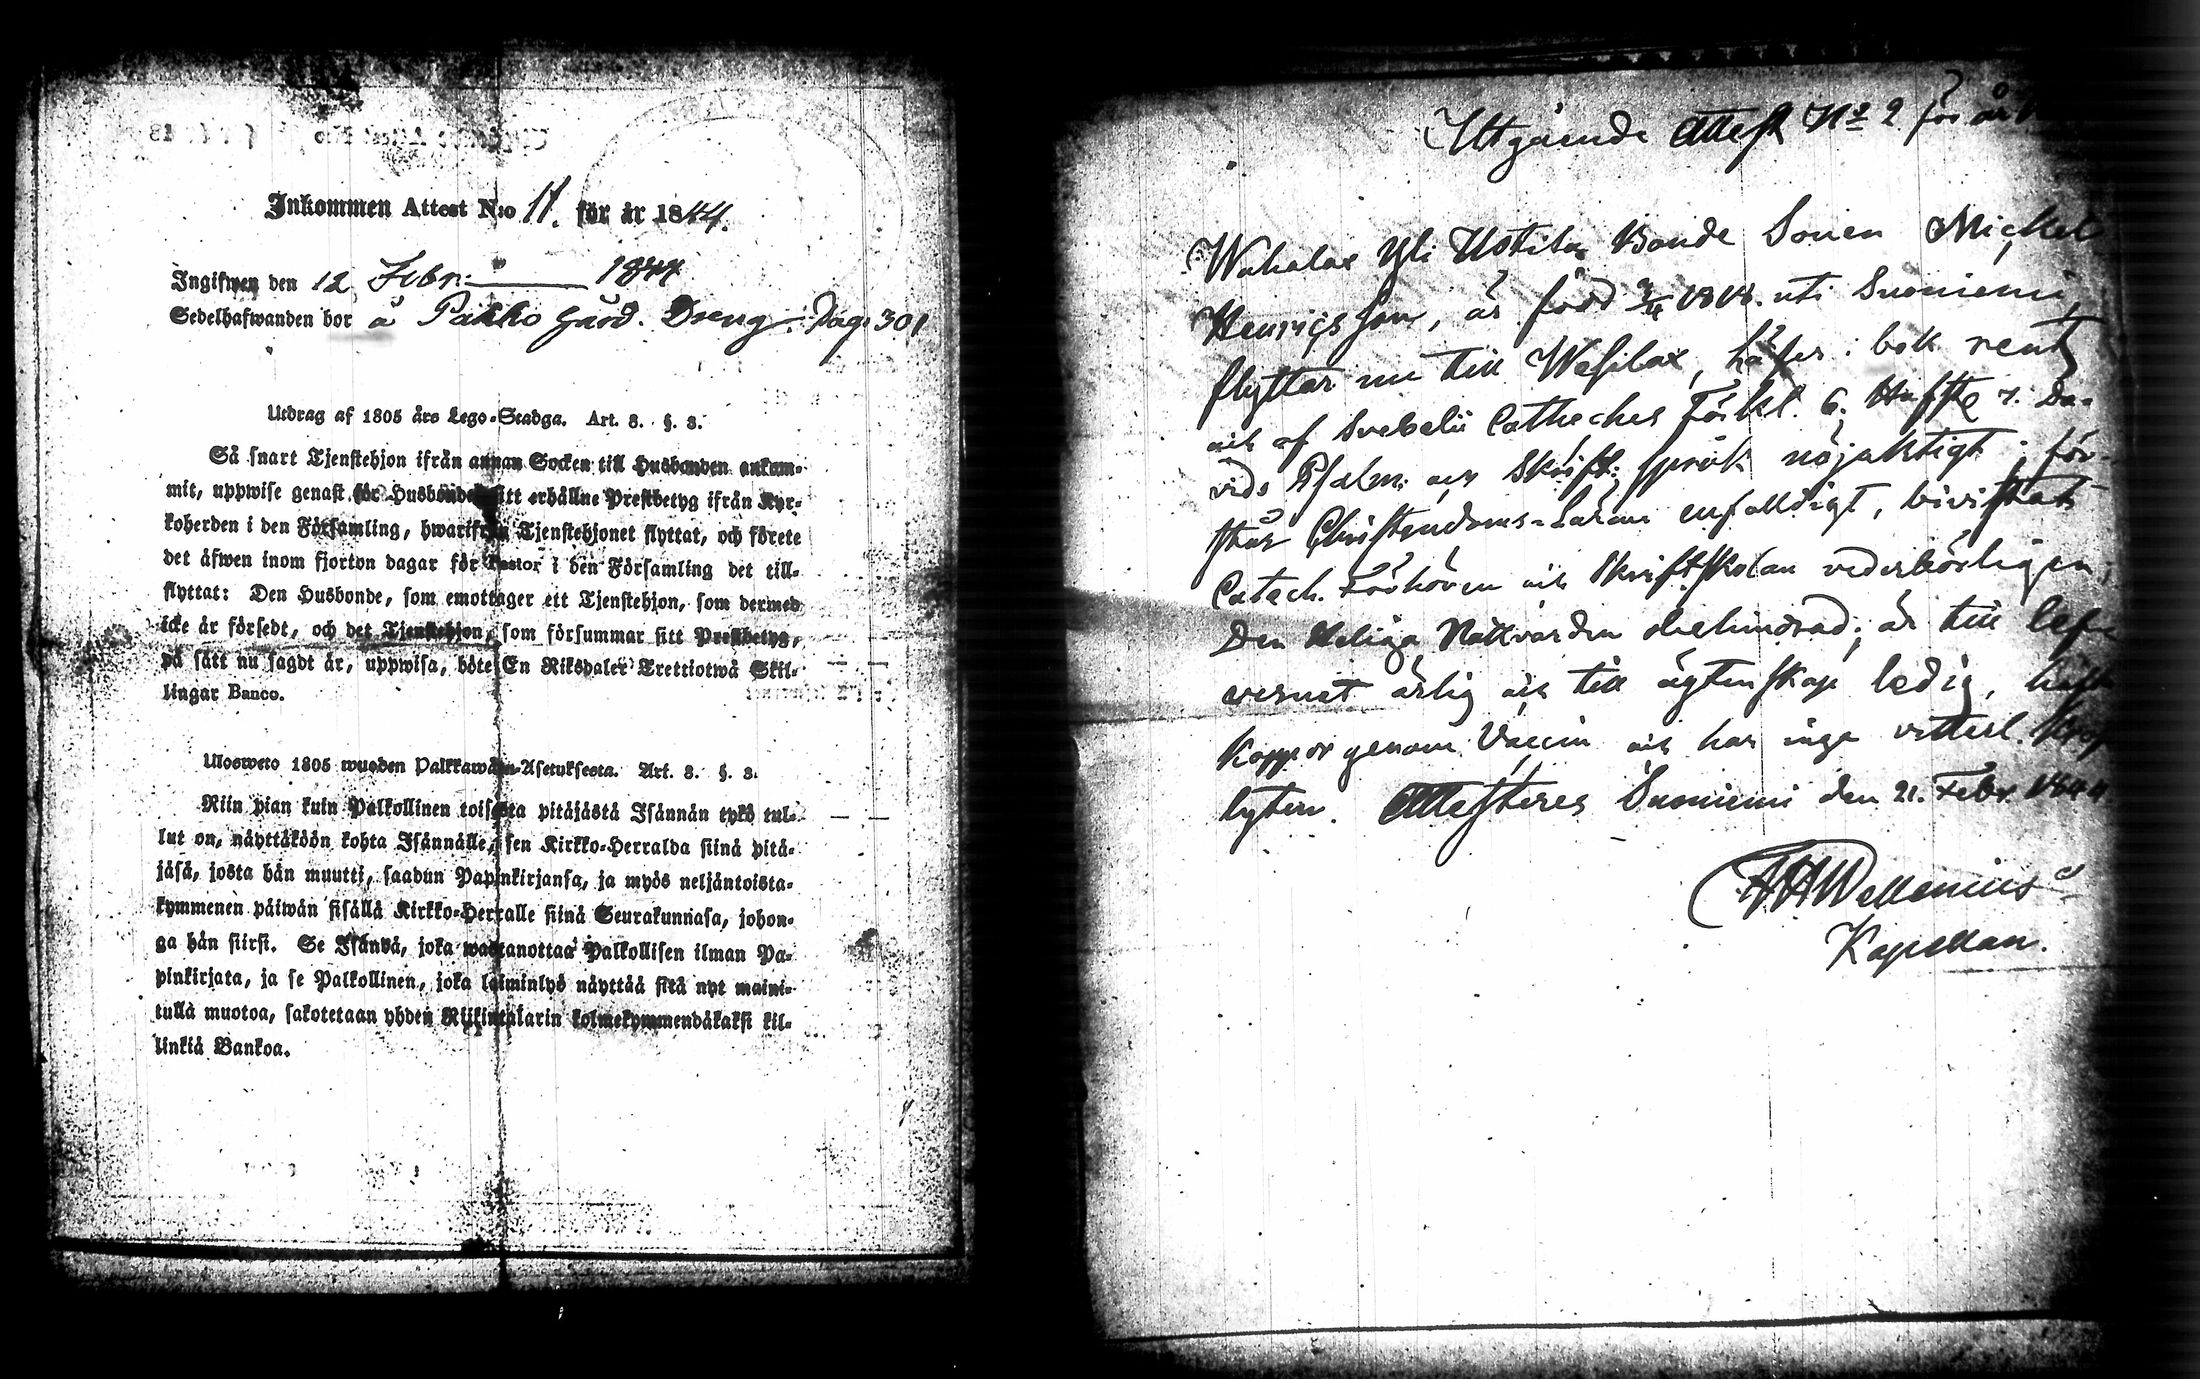 Inkommen Attest N:o 11. för år 1844.
Ingifwen den 12 Febr: 1844
Sedelhafwanden bor å Pakko gård. Dreng. Pag. 301
Utdrag af 1805 års Lego-Stadga. Art. 8. §. 8.
Så snart Tjenstehjon ifrån annan Socken till Husbonden ankom-
mit, uppwise genast för Husbonden sitt erhållne Prestbetyg ifrån Kyr-
koherden i den Församling, hwarifrån Tjenstehjonet flyttat, och förete
det äfwen inom fjorton dagar för Pastor i den Församling det till-
flyttat: Den Husbonde, som emottager ett Tjenstehjon, som dermed
icke är försedt, och det Tjenstehjon, som försummar sitt Prestbetyg,
på sätt nu sagdt är, uppwisa, böte En Riksdaler Trettiotwå Skil-
lingar Banco.
Ulosweto 1805 wuoden Palkkawäen-Asetuksesta. Art. 8. §. 8.
Niin pian kuin Palkollinen toisesta pitäjästä Isännän tykö tul-
lut on, näyttäköön kohta Isännälle, sen Kirkko-Herralda siinä pitä-
jäsä, josta hän muutti, saadun Papinkirjansa, ja myös neljäntoista-
kymmenen päiwän sisällä Kirkko-Herralle siinä Seurakunnasa, johon-
ga hän siirsi. Se Isändä, joka wastanottaa Palkollisen ilman Pa-
pinkirjata, ja se Palkollinen, joka laiminlyö näyttää sitä nyt maini-
tulla muotoa, sakotetaan yhden Riikintalarin kolmekymmendäkaksi kil-
linkiä Bankoa.
Utgående Attest No 2 för år
Wahalax Yli Uotila Bonde Sonen Mickel
Henricsson, är född 1818. uti Suoniemi,
flyttar nu till Wesilax, läser i bok rent
och af Svebelii Catheches Förkl. 6. Huffst. 7. Da-
vids Psalm. och Skrift. språk nöjaktigt; för-
står Christendoms-Läran enfalldigt, bivistat
Catech. Förhören och Skriftskolan vederbörligen;
Den Heliga Nattvarden obehindrad; är till lef-
vernet ärlig och till ägtenskap ledig, haft
koppor genom Vaccin och har inga vetterl. kropps
lyten. Attesteres Suoniemi den 21. Febr. 1844
Wallenius
Kapellan.